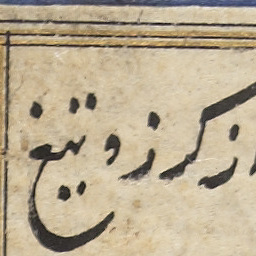 از کرز و تیغ